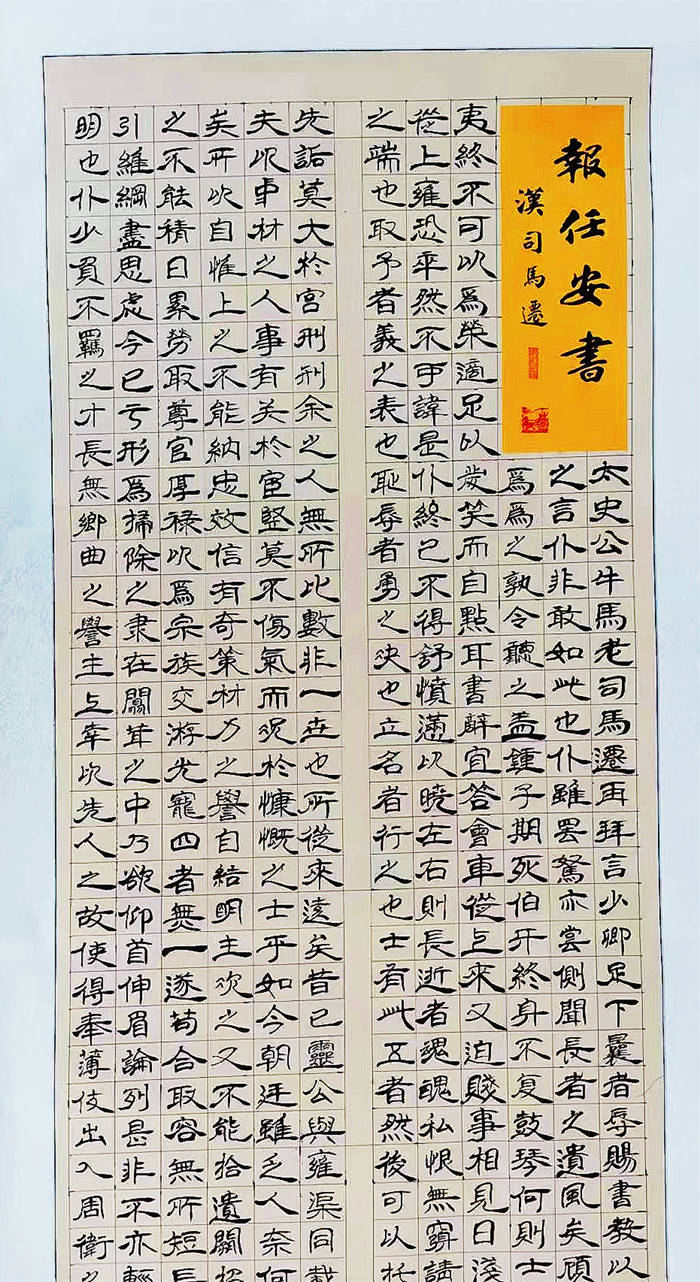 報任安書
漢司馬遷
太史公牛馬走司馬遷再拜言少卿足下曩者辱賜書教以
之言仆非敢如此也仆雖罷駑亦嘗側聞長者之遺風矣顧
爲爲之孰令聽之蓋鍾子期死伯牙終身不复鼓琴何則士
夷終不可以爲榮適足以發笑而自點耳書辭宜答會車從上來又迫賤事相見日淺
從上雍恐卒然不可諱是仆終已不得舒憤懣以曉左右則長逝者魂魄私恨無窮請
之端也取予者義之表也恥辱者勇之決也立名者行之也士有此五者然後可以托
先詬莫大於宮刑刑余之人無所比數非一世也所從來遠矣昔已靈公與雍渠同載
夫以中材之人事有关於宦豎莫不傷氣而況於慷慨之士乎如今朝廷雖乏人奈何
矣所以自惟上之不能納忠效信有奇策材力之譽自結明主次之又不能拾遺闕招
之不能積日累勞取尊官厚祿以爲宗族交游光寵四者無一遂苟合取容無所短長
引維綱盡思慮今已亏形爲掃除之隶在闒茸之中乃欲仰首伸眉論列是非不亦輕
明也仆少負不羈之才長無鄉曲之譽主上幸以先人之故使得奉薄伎出入周衛之